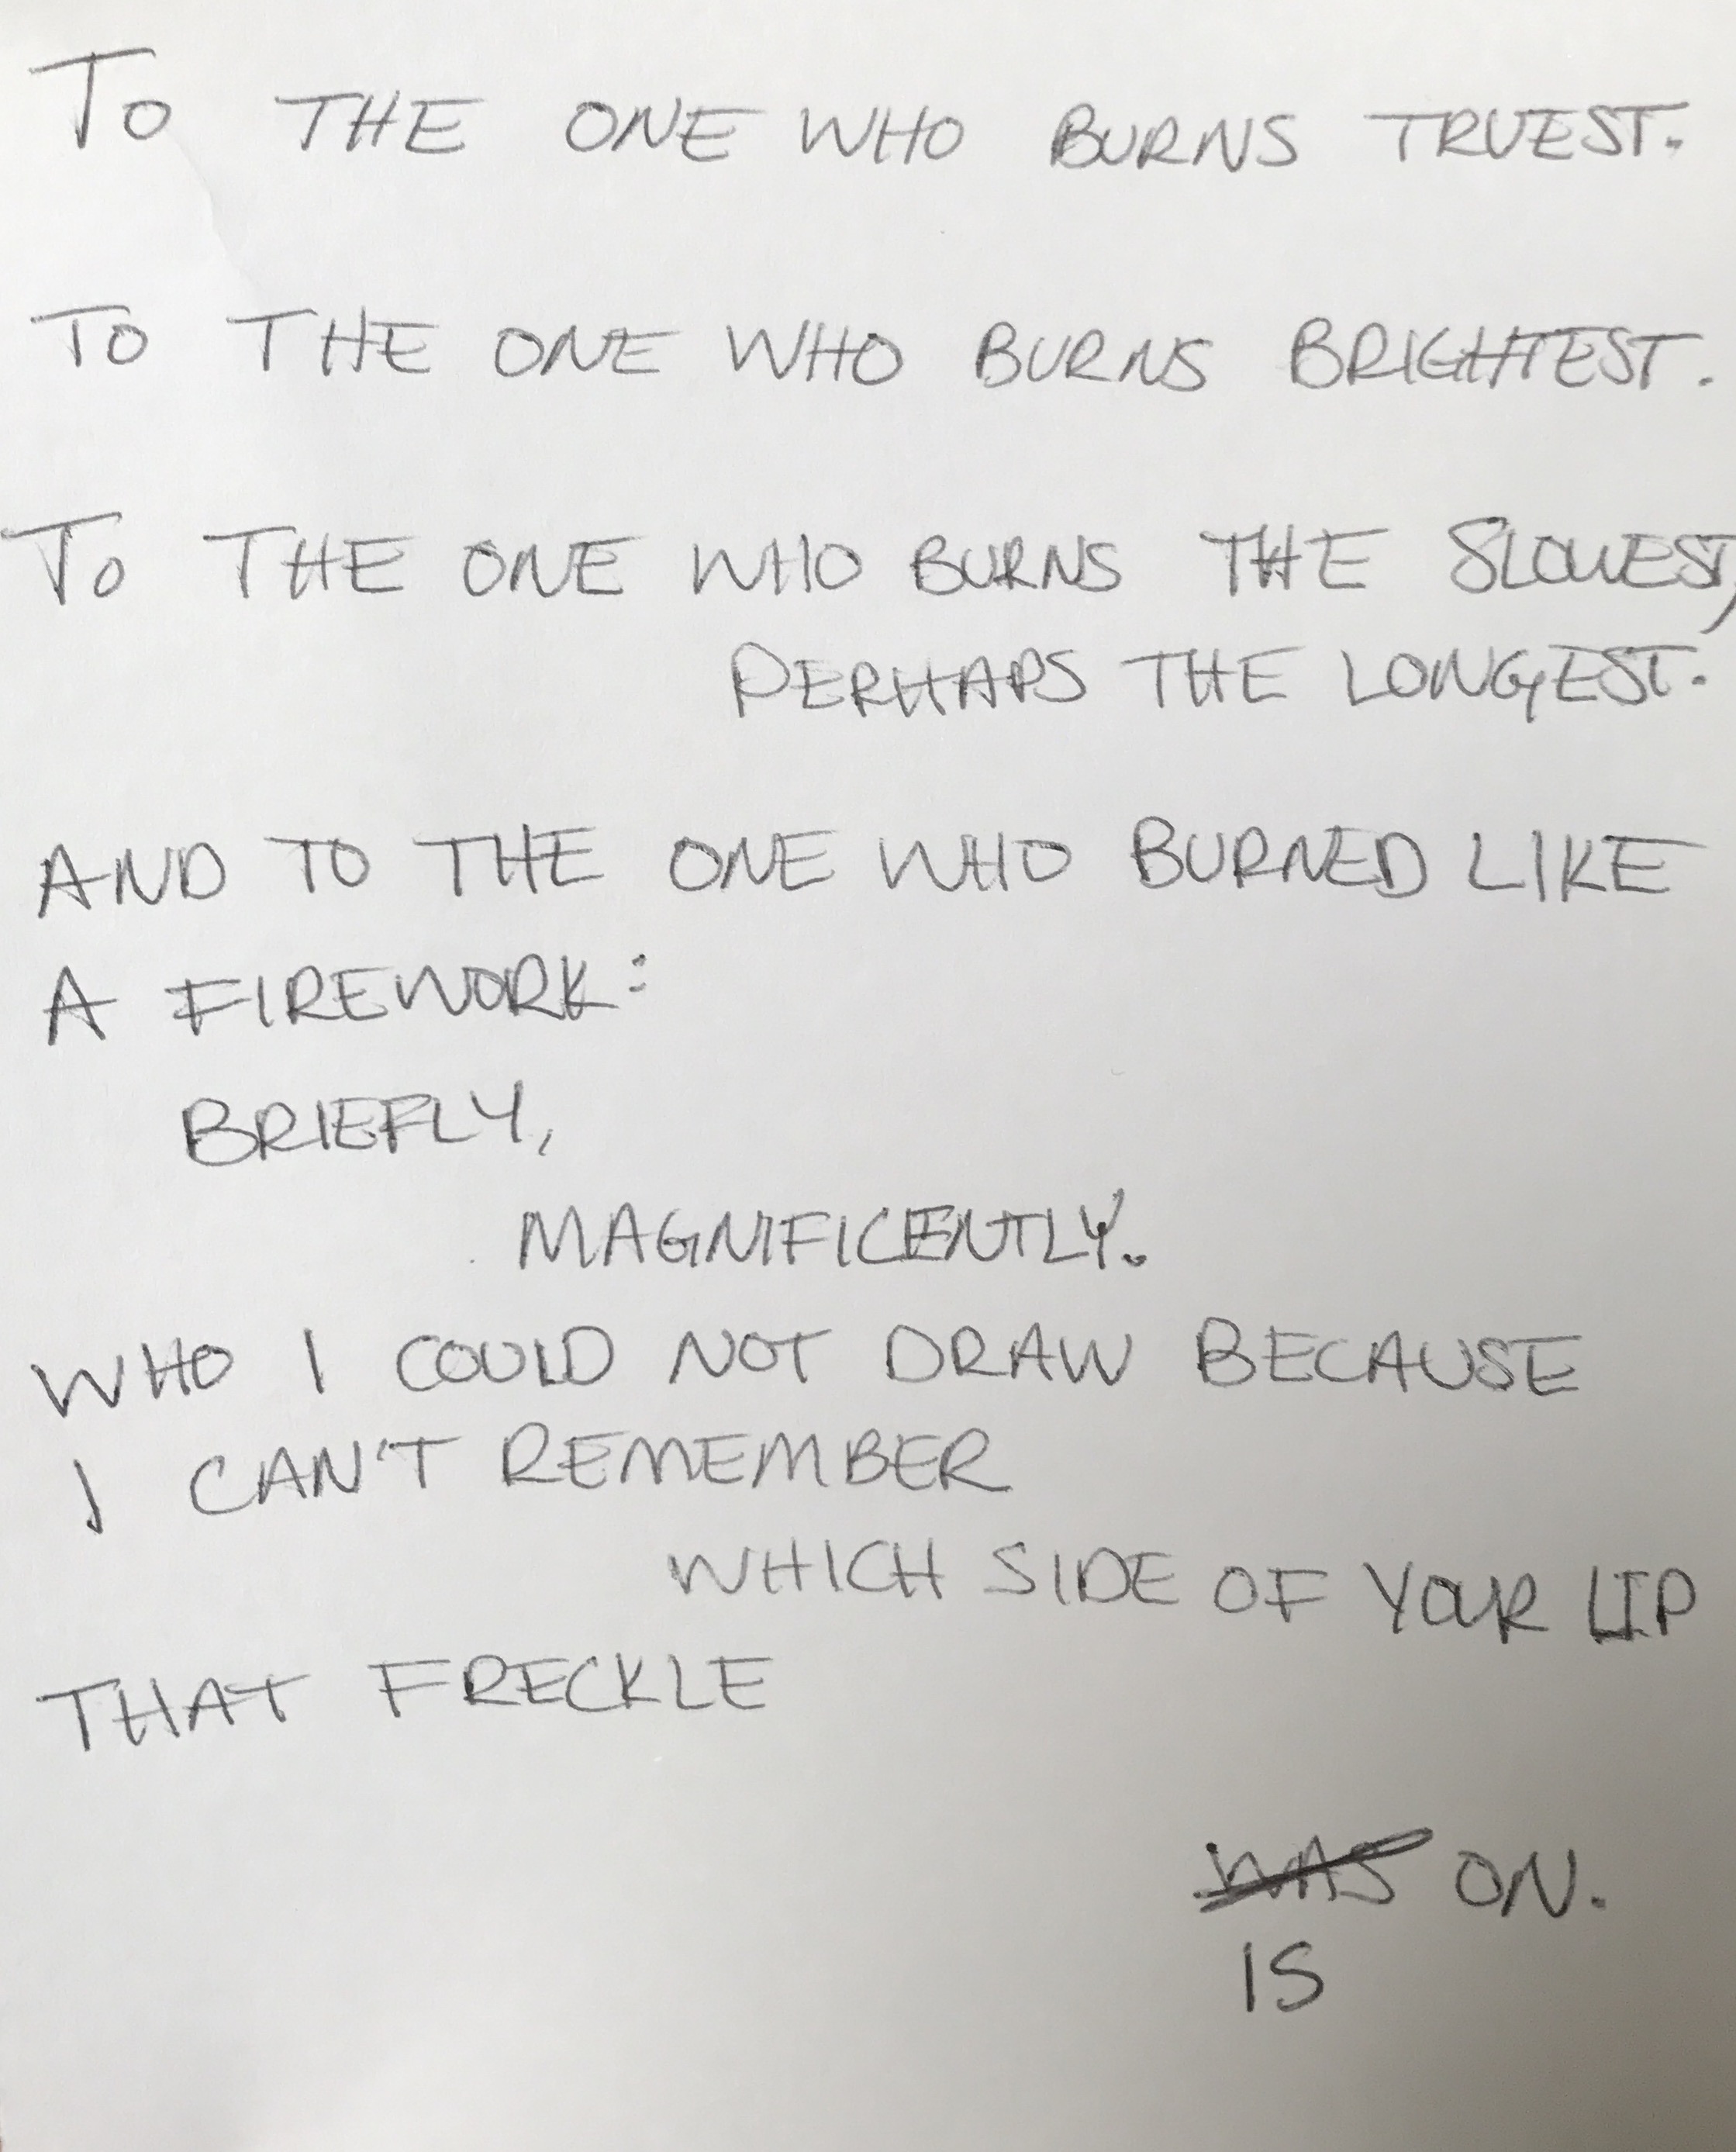 TO THE ONE WHO BURNS TRUEST.
TO THE ONE WHO BURNS BRIGHTEST.
TO THE ONE WHO BURNS THE SLOWEST,
PERHAPS THE LONGEST.
AND TO THE ONE WHO BURNED LIKE
A FIREWORK:
BRIEFLY,
MAGNIFICENTLY.
WHO I COULD NOT DRAW BECAUSE
I CAN'T REMEMBER
WHICH SIDE OF YOUR LIP
THAT FRECKLE
WAS ON.
IS